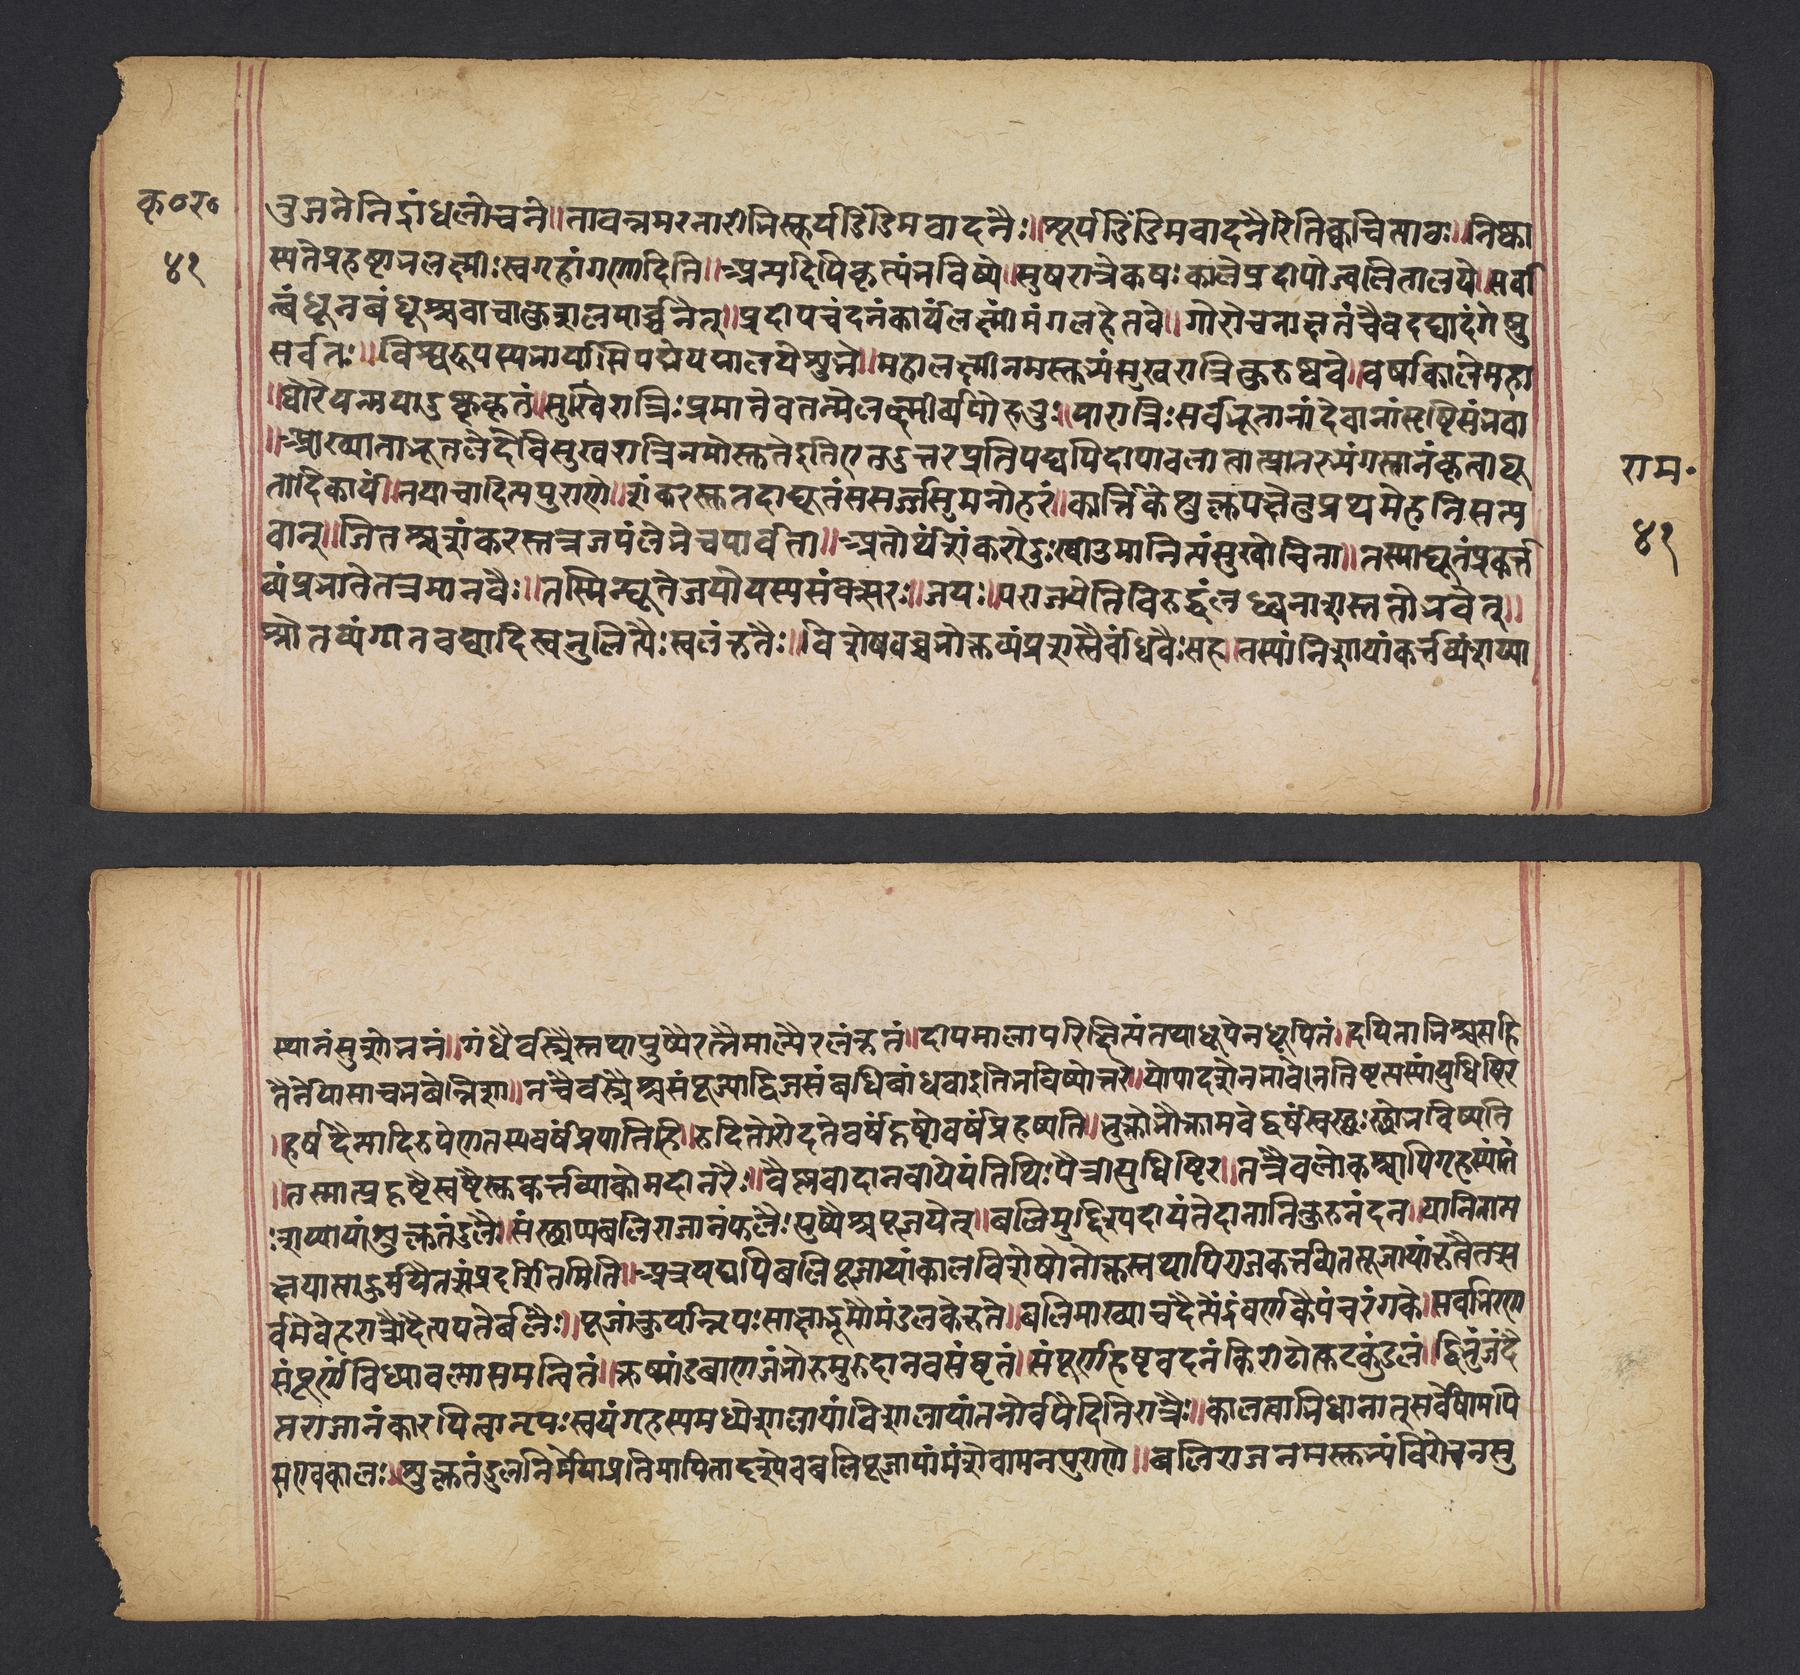 कृ०र०
४१
नुजनेनिद्रांधलोचने॥तावन्नगरनारीभिस्तूर्यडिंडिमवादनैः॥शूर्पडिंडिमवादनैरितिक्वचित्पाठः॥निष्का
स्यतेप्रहृष्टाभिरलक्ष्मीः स्वगृहांगणादिति॥अन्यदपिकृत्यंभविष्ये॥सुषरात्रेरुषःकालेप्रदीपोज्वलितालये॥सर्वा
न्बंधूनबंधूंश्चवाचाकुशलयार्चयेत्॥प्रदीपचंदनंकार्यंलक्ष्मीमंगलहेतवे॥गोरोचनाक्षतंचैवदद्यादंगेषु
सर्वतः॥विश्वरूपस्यभार्यासिपद्मेपद्मालयेशुभे॥महालक्ष्मीनमस्तुभ्यंसुखरात्रिंकुरुष्वमे॥वर्षाकालेमहा
॥घोरेयन्मयादुष्कृतंकृतं॥सुखरात्रिःप्रभातेवतन्मेलक्ष्मीर्व्यपोहतु॥यारात्रिःसर्वभूतानांदेवानांसृष्टिसंभवा
॥आख्याताभूतलेदेविसुखरात्रिनमोस्तुतेइतिएतदुत्तरप्रतिपद्यपिदीपावलीत्वात्प्रातरभ्यंगस्नानंकृत्वाद्यू
तादिकार्यं॥तथाचादित्यपुराणे॥शंकरस्तुतदाद्यूतंससर्जसुमनोहरं॥कार्त्तिकेशुक्लपक्षेतुप्रथमेहनिसत्य
वान्॥जितश्चशंकरस्तत्रजयंलेभेचपार्वती॥अतोर्थंशंकरोदुःखीउमानित्यंसुखोचिता॥तस्माद्यूतंप्रकर्त्त
व्यंप्रभातेतत्रमानवैः॥तस्मिन्द्यूतेजयोयस्यसंवत्सरः॥जयः॥पराजयेतिविरुद्धंलब्धनाशस्ततोभवेत्॥
श्रोतव्यंगीतवद्यादिस्वनुलिप्तैःस्वलंकृतैः॥विशेषवच्चभोक्तव्यंप्रशस्तैर्बांधवैःसह॥तस्यांनिशायांकर्त्तव्यंशय्या
राम०
४१
स्थानंसुशोभनं॥गंधैर्वस्त्रैस्तथापुष्पैरत्नैर्माल्यैरलंकृतं॥दीपमालापरिक्षिप्तंतथाधूपेनधूपितं॥दयिताभिश्चसहि
तैर्नेयासाचभवेन्निशा॥नवैर्वस्त्रैश्चसंपूज्याद्विजसंबंधिबांधवाइतिभविष्योत्तरे॥योयादृशेनभावेनतिष्ठत्यस्यांयुधिष्ठिर
॥हर्षदैन्यादिरूपेणतस्यवर्षंप्रयातिहि॥रुदितेरोदतेवर्षंहृष्टोवर्षंप्रहृष्यति॥भुक्तोभोक्ताभवेद्वर्षंस्वस्थःस्वस्थोभविष्यति
॥तस्मात्प्रहृष्टैस्तुष्टैस्तुकर्त्तव्याकौमुदीनरैः॥वैष्णवीदानवीयेयंतिथिःपैत्रीयुधिष्ठिर॥तत्रैवलोकश्चापिगृहस्यांते
शय्यायांशुक्लतंडुलैः॥संस्थाप्यबलिराजानंफलैःपुष्पैश्चपूजयेत्॥बलिमुद्दिश्यदीयंतेदानानिकुरुनंदन॥यानितान्य
क्षयासादुर्मयैतत्संप्रदर्शितमिति॥अत्रयद्यपिबलिपूजायांकालविशेषोनोक्तस्तथापिराजकर्त्तव्यितत्पूजायांकृत्वैतत्स
र्वमेवेहरात्रौदैत्यपतेर्बलेः॥पूजांकुर्यान्नृपःसाक्षाद्भूमौमंडलकेकृते॥बलिमालिख्यदैत्येंद्रंवर्णकैःपंचरंगकैः॥सर्वाभरण
संपूर्णंविंध्यावल्यासमन्वितं॥कूष्मांडबाणजंभोरुमुरुदानवसंवृतं॥संपूर्णहृष्टवदनंकिरीटोत्कटकुंडलं॥द्विभुजंदै
त्यराजानंकारयित्वानृपःस्वयंगृहस्यमध्येशालायांविशालायांततोर्चयेदितिरात्रेः॥कालत्वाभिधानात्सर्वेषामपि
सएवकालः॥शुक्लतंडुलनिर्मेयाप्रतिमापितादृश्येवबलिपूजायांमंत्रोवामनपुराणे॥बलिराजनमस्तुभ्यंविरोचनसु